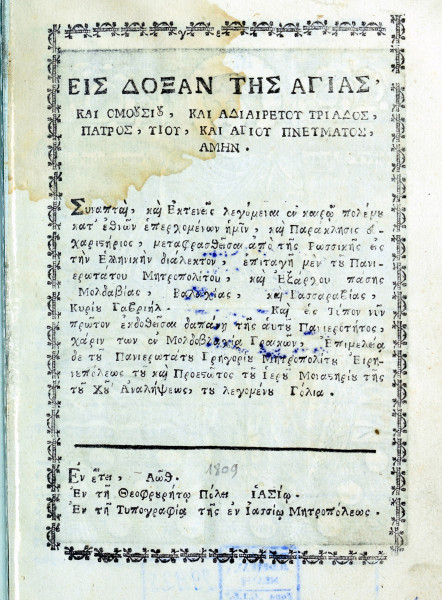 ΕΙΣ ΔΟΞΑΝ ΤΗΣ ΑΓΙΑΣ,
ΚΑΙ ΟΜΟȢΣΙȢ, ΚΑΙ ΑΔΙΑΙΡΕΤΟΥ ΤΡΙΑΔΟΣ,
ΠΑΤΡΟΣ, ΥΙΟΥ, ΚΑΙ ΑΓΙΟΥ ΠΝΕΥΜΑΤΟΣ,
ΑΜΗΝ.
Συναπταὶ, καὶ Εκτενεῖς λεγόμεναι ἐν καιρῷ πολέμȣ
κατ' ἐθνῶν ἐπερχομένων ἡμῖν, καὶ Παράκλησις ἐυ
χαριστήριος, μεταφρασθεῖσαι ἀπὸ τῆς Ρωσσικῆς εἰς
τὴν Ελληνικὴν διάλεκτον, ἐπιταγῇ μὲν τȣ Πανι
ερωτάτου Μητροπολίτου, καὶ Εξάρχου πάσης
Μολδαβίας, Βαλαχίας, καὶ Βασσαραβίας,
Κυρίȣ Γαβριήλ. Καὶ εἰς Τύπον νῦν
πρῶτον ἐκδοθεῖσαι δαπάνῃ τῆς αὐτȣ Πανιερότητος,
χάριν τῶν ἐν Μολδοβλαχίᾳ Γραικῶν, Επιμελείᾳ
δὲ τȣ Πανιερωτάτȣ Γρηγορίȣ Μητροπολίτȣ Εἰρη
νȣπόλεως τȣ καὶ Προεστῶτος τȣ Ιερȣ Μοναστηρίȣ τῆς
τȣ Χȣ Αναλήψεως, τȣ λεγομένȣ Γόλια.
Εν ἔτει, Αωθ. 1809
Εν τῇ Θεοφρȣρήτῳ Πόλει ΙΑΣΙῳ.
Εν τῇ Τυπογραφίᾳ τῆς ἐν Ιασσίῳ Μητροπόλεως.